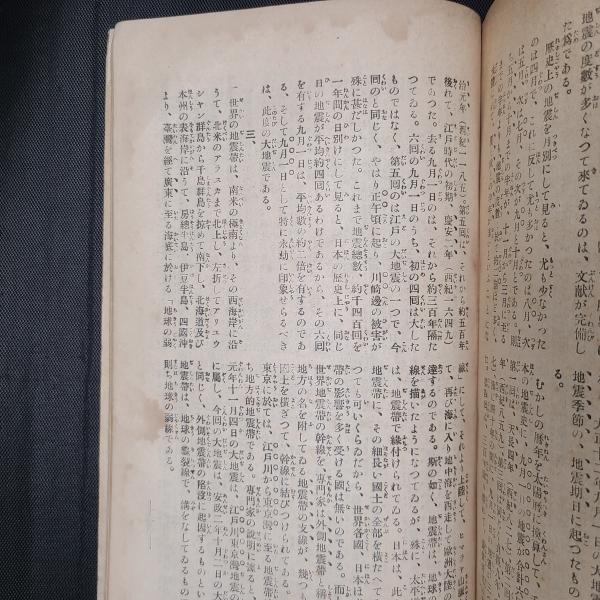 地震の度數が多くなつて來てゐるのは、文献が完備し
た爲である。
歷史上の地震を月別にして見ると、尤も少なかつた
のは四月で、これに反して尤も多かつたのは八月、次
むかしの曆年を太陽曆に換算して、
本の地震史に、九月一日
第一回は、天長四年(西紀八
る。
地震季節の、地震期日に起つたもの
後れて、江戸時代の初期、慶安二年(西紀一六四九
であつた。去る九月一日のは、それから約三百年隔た
つてゐる。六回の九月一日のうち、初の四回は大した
ものではなく、第五回のは江戸の大地震の一つで、今
同のと同じく、やはり正午頃に起り、川崎邊の被害が
殊に甚だしかつた。これまで地震總數、約千四百回を
一年間の日別けにして見ると、日本の歷史上に、同じ
日の地震が平均約四回あるわけであるから、その六回
を有する九月一日は、平均數の約二倍を有するのであ
る、そして九月一日として特に永劫に印象せらるべき
は、此度の大地震である。
三、
世界の地震帶は、南米の極南より、その西海岸に沿
うて、北米のアラスカまで北上し、左折してアリユウ
シヤン群島から千島群島を掠めて南下し、北海道及び
本州の表海岸に沿うて、房總半島、伊豆半島、四國沖
より、臺灣を經て廣東に至る海底に於ける「地球の弱
て、再び海に入り地中海を西走して歐洲大陸の
達するのである。斯の如く、地震帶は、地球の
線を描いたやうになつてゐるが、殊に、太平洋
は、地震帶で緣付けられてゐる。日本は、此
地震帶に、その細長い國土の全部を橫たへて
つても可いくらゐだから、世界各國、日本ほ
帶の影響を多く受ける國は無いのである。而
世界地震帶の幹線を、專門家は外側地震帶と稱
地方の名を附してゐる地震帶の支線が、幾つも
國土を橫ぎつて、幹線に結びつけられてゐる。
東京に於ては、江戸川から東京灣に至る地震帶
ち地方的地震帶である。專門家の說明に依る
元年十一月四日の大地震は、江戸川東京灣地震の
に屬し、今回の大地震は、安政二年十月二日の大
と同じく、外側地震帶の陷沒に起因するものとい
地震帶は、地球の龜裂線で、溝をなしてゐるもの
則ち地球の弱線である。